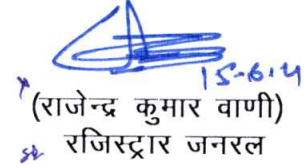 15-6-21
(राजेन्द्र कुमार वाणी)
रजिस्ट्रार जनरल